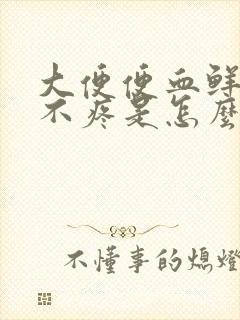 大便便血鲜
不疼是怎麼
不懂事的熄燈